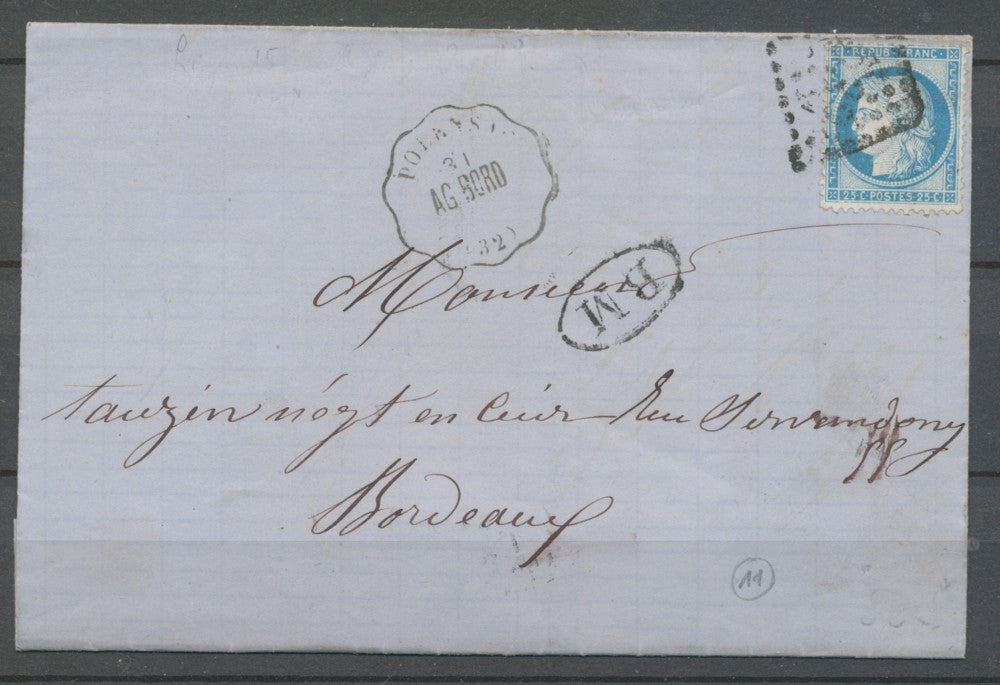 D 15
REPUB. FRANC.
25 C POSTES 25 C
31
AG. BORD
(32)
BM
Monsieur
tauzin négt en Cuir Rue Servandony
55
Bordeaux
11